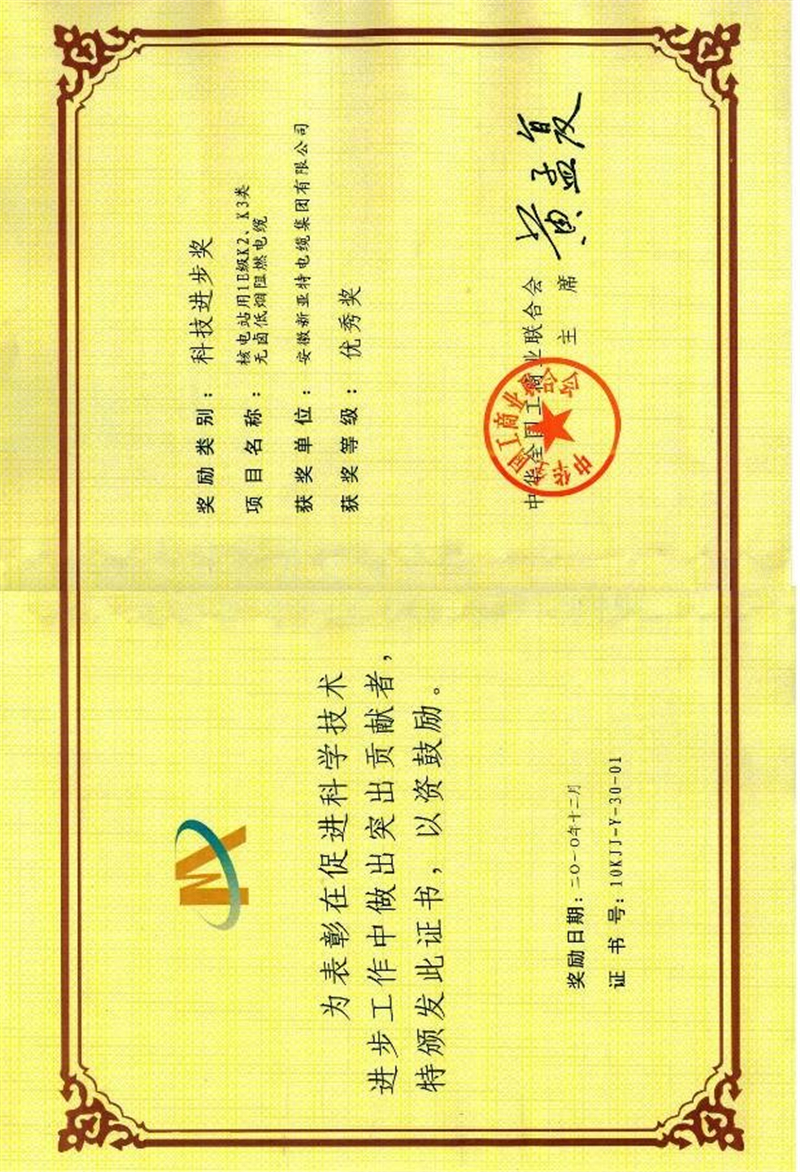 为表彰在促进科学技术
进步工作中做出突出贡献者，
特颁发此证书，以资鼓励。
奖励日期：二〇一〇年十二月
证 书 号：10KJJ-Y-30-01
奖励类别：科技进步奖
项目名称：核电站用1E级K2、K3类
无卤低烟阻燃电缆
获奖单位：安徽新亚特电缆集团有限公司
获奖等级：优秀奖
中华全国工商业联合会
主 席 黄孟复
中华全国工商业联合会